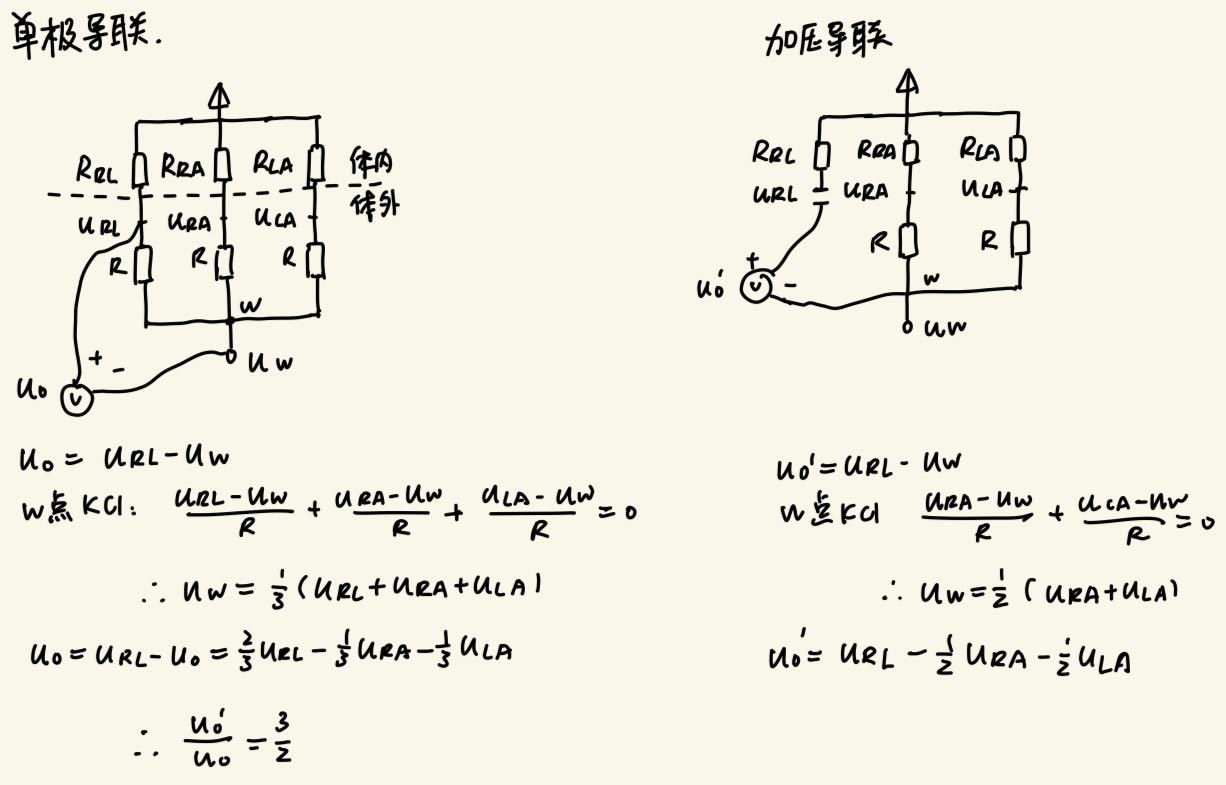 单极导联.
RRL RRA RLA 体内
体外
uRL uRA uLA
R R R
w
uw
+ -
u₀ V
u₀ = uRL - uw
w点 KCl: (uRL - uw)/R + (uRA - uw)/R + (uLA - uw)/R = 0
∴ uw = 1/3 (uRL + uRA + uLA)
u₀ = uRL - u₀ = 2/3 uRL - 1/3 uRA - 1/3 uLA
∴ u₀'/u₀ = 3/2
加压导联
RRL RRA RLA
uRL uRA uLA
R R
+ -
u₀' V
w
uw
u₀' = uRL - uw
w点 KCl (uRA - uw)/R + (uLA - uw)/R = 0
∴ uw = 1/2 (uRA + uLA)
u₀' = uRL - 1/2 uRA - 1/2 uLA